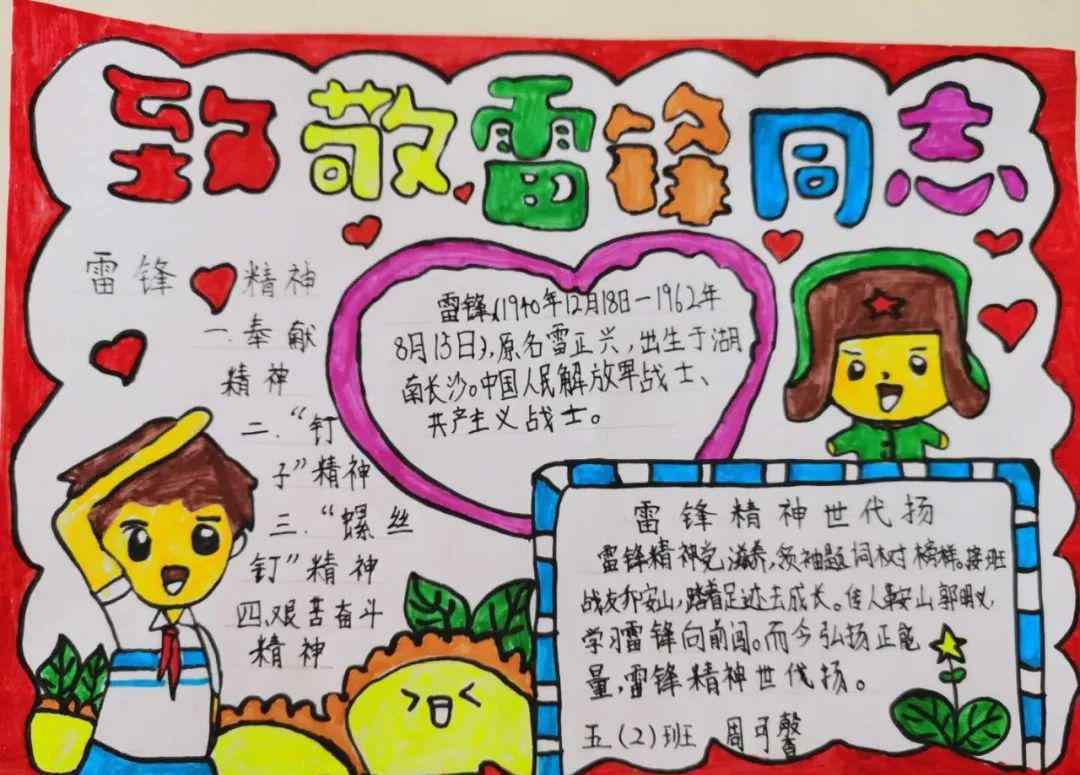 致敬雷锋同志
雷锋 精神
一.奉献
精神
二.“钉
子”精神
三.“螺丝
钉”精神
四、艰苦奋斗
精神
雷锋(1940年12月18日-1962年
8月15日),原名雷正兴,出生于湖
南长沙。中国人民解放军战士、
共产主义战士。
雷锋精神世代扬
雷锋精神党滋养,领袖题词树榜样。接班
战友乔安山,踏着足迹去成长。传人鞍山郭明义,
学习雷锋向前闯。而今弘扬正能
量,雷锋精神世代扬。
五(2)班 周可馨